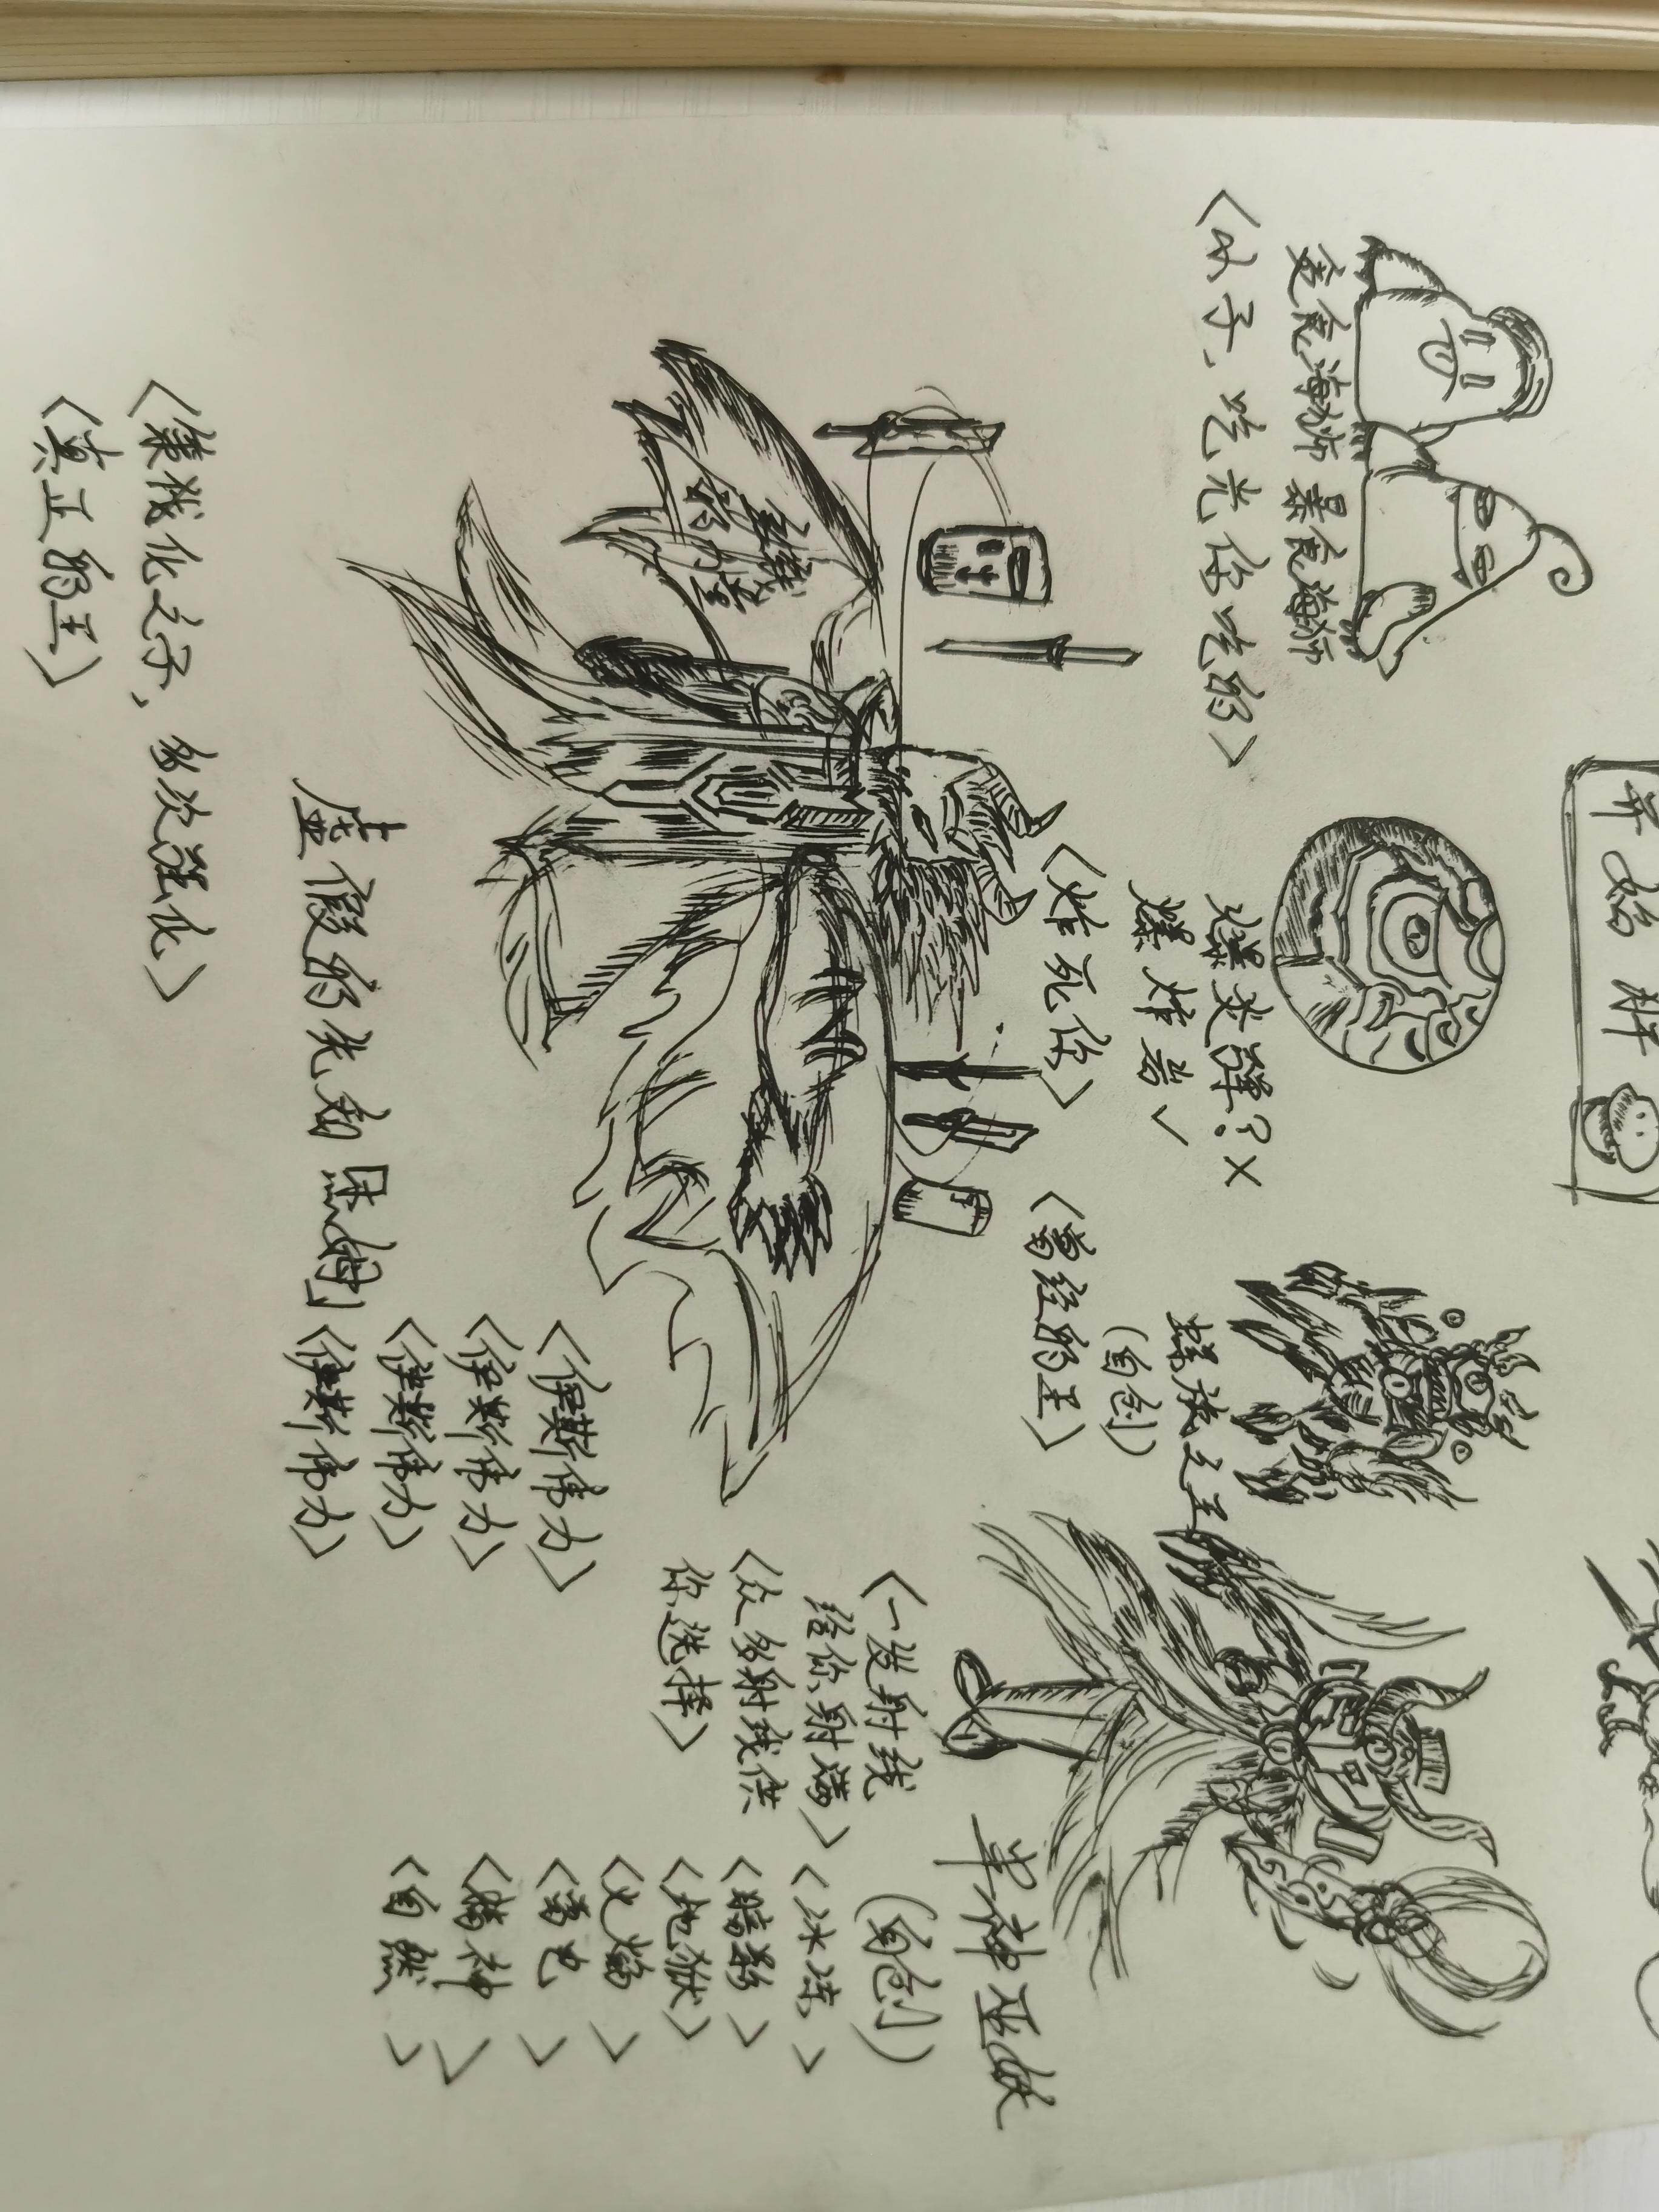 开始
速食海狮 暴食海狮
<小子、吃光你吃的>
爆炎弹?×
爆炸岩✓
<炸死你>
蝶族之王
(自创)
<曾经的王>
半神巫妖
(自创)
<一发射线
给你射满>
<众多射线供
你选择>
<冰冻>
<暗影>
<地狱>
<火焰>
<雷电>
<精神>
<自然>
虚假的先知
<伊斯伟力>
<伊斯伟力>
<伊斯伟力>
<伊斯伟力>
<集械化之子、多次强化>
<真正的王>